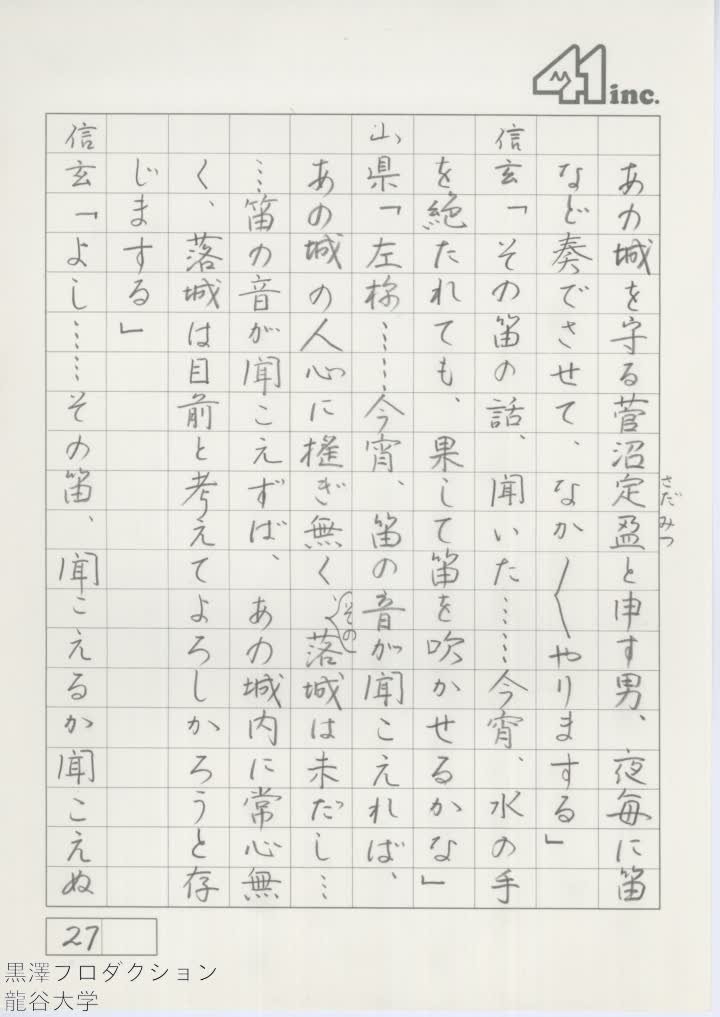 41 inc.
あの城を守る菅沼定盈と申す男、夜毎に笛
さだみつ
など奏でさせて、なか〳〵やりまする」
信玄「その笛の話、聞いた……今宵、水の手
を絶たれても、果して笛を吹かせるかな」
山県「左様……今宵、笛の音が聞こえれば、
あの城の人心に揺ぎ無く落城は未だし…
その
…笛の音が聞こえずば、あの城内に常心無
く、落城は目前と考えてよろしかろうと存
じまする」
信玄「よし……その笛、聞こえるか聞こえぬ
27
黒澤プロダクション
龍谷大学